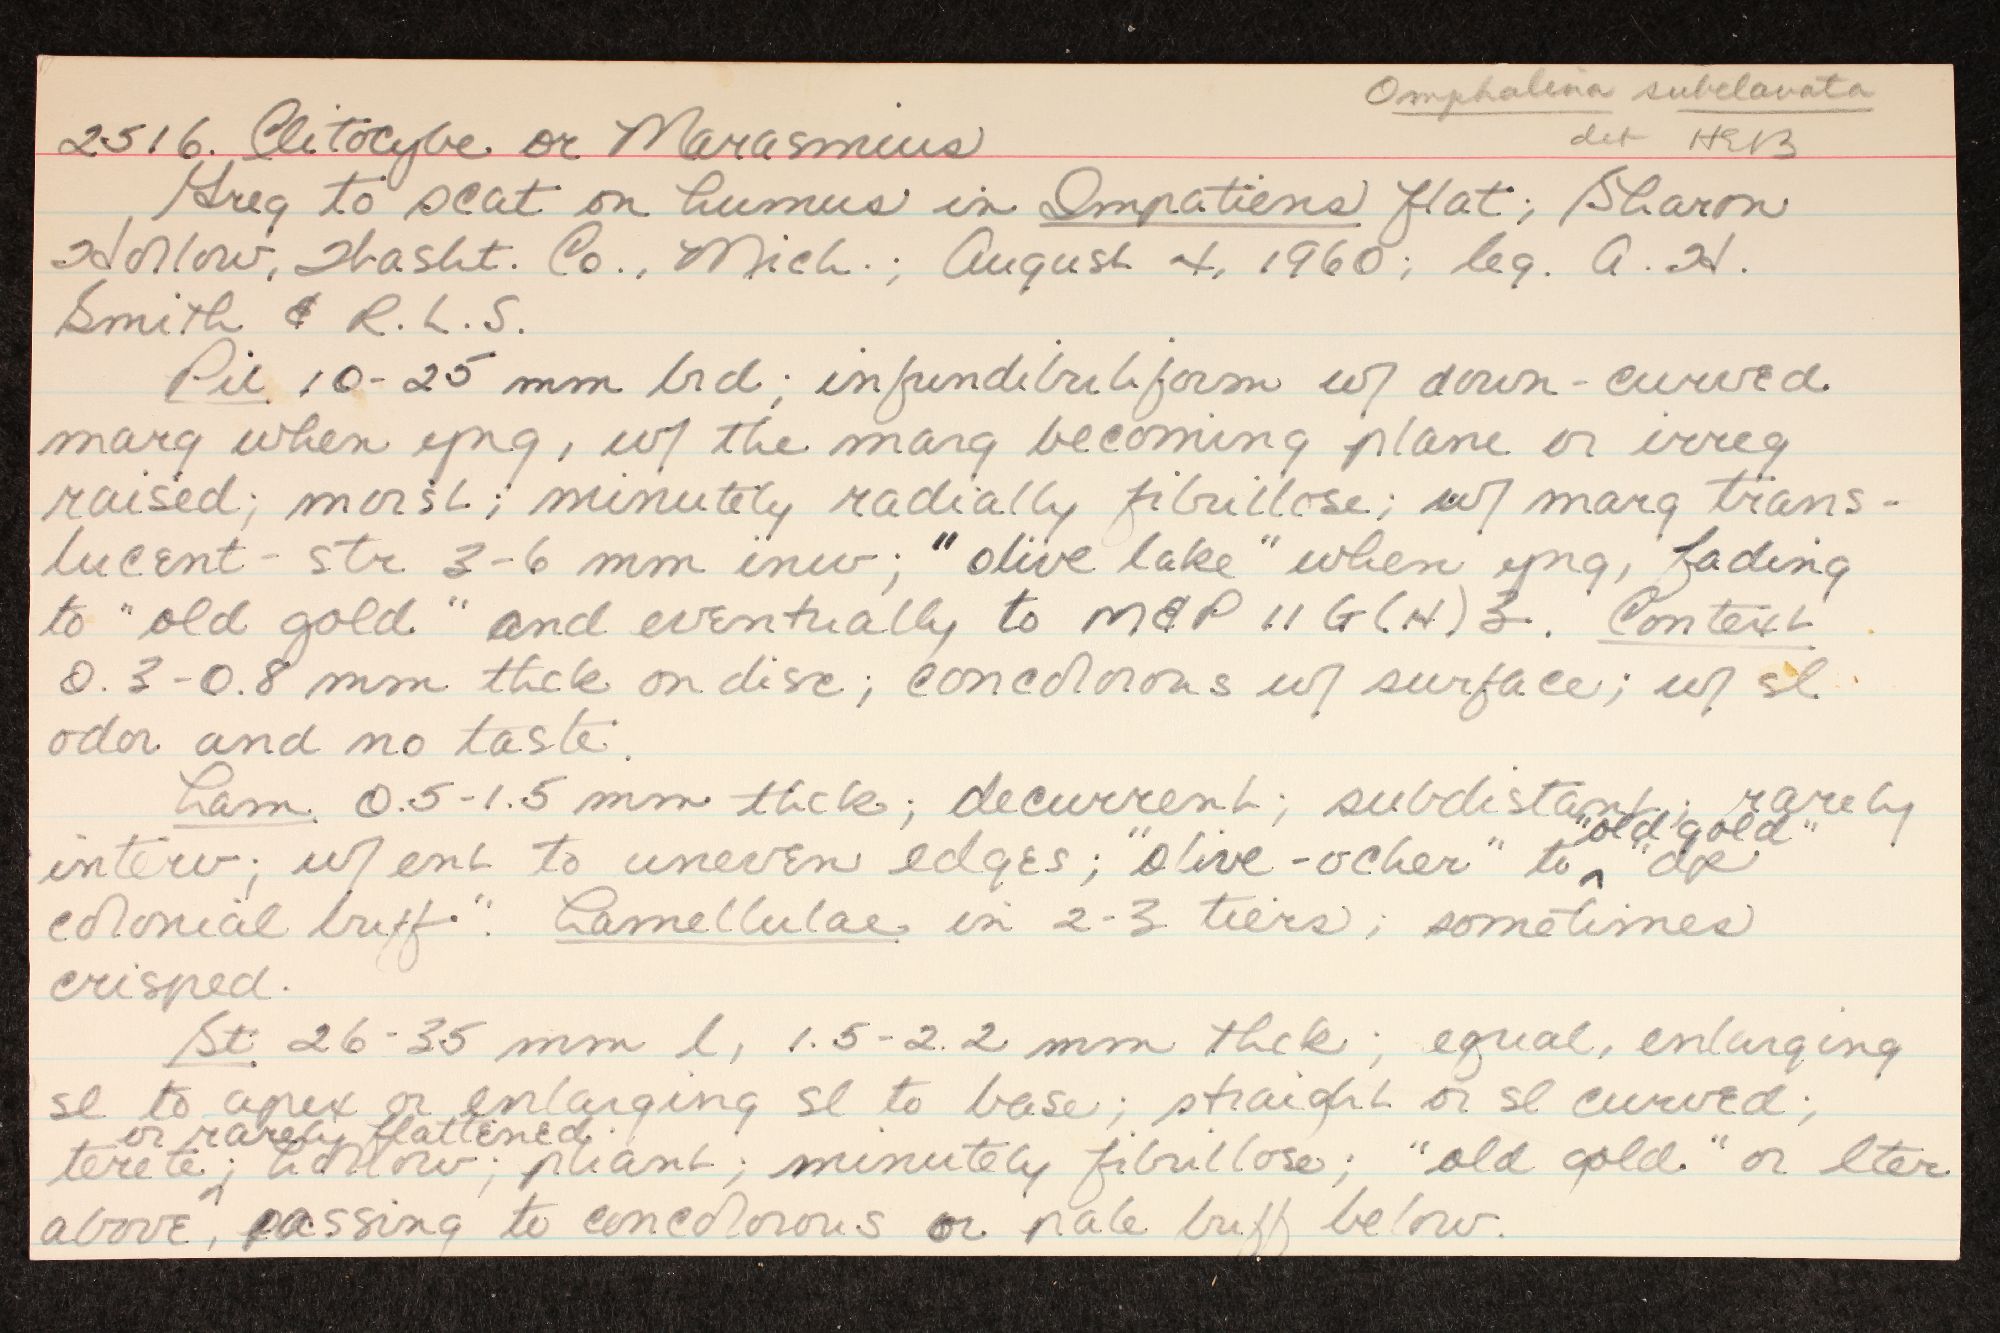 Omphalina subclavata
det HEB
2516. Clitocybe or Marasmius
Greg to scat on humus in Impatiens flat; Sharon
Hollow, Washt. Co., Mich.; August 4, 1960; leg. A. H.
Smith & R. L. S.
Pil 10-25 mm brd; infundibuliform w/ down-curved
marg when yng, w/ the marg becoming plane or irreg
raised; moist; minutely radially fibrillose; w/ marg trans-
lucent-str 3-6 mm inw; "olive lake" when yng, fading
to "old gold" and eventually to M&P 11 G(H)3. Context
0.3-0.8 mm thck on disc; concolorous w/ surface; w/ sl
odor and no taste.
Lam 0.5-1.5 mm thck; decurrent; subdistant; rarely
"old gold"
interv; w/ ent to uneven edges; "olive-ocher" to ^ "dp
colonial buff". Lamellulae in 2-3 tiers; sometimes
crisped.
St. 26-35 mm l, 1.5-2.2 mm thck; equal, enlarging
sl to apex or enlarging sl to base; straight or sl curved;
or rarely flattened
terete; ^ hollow; pliant; minutely fibrillose; "old gold" or lter
above, passing to concolorous or pale buff below.